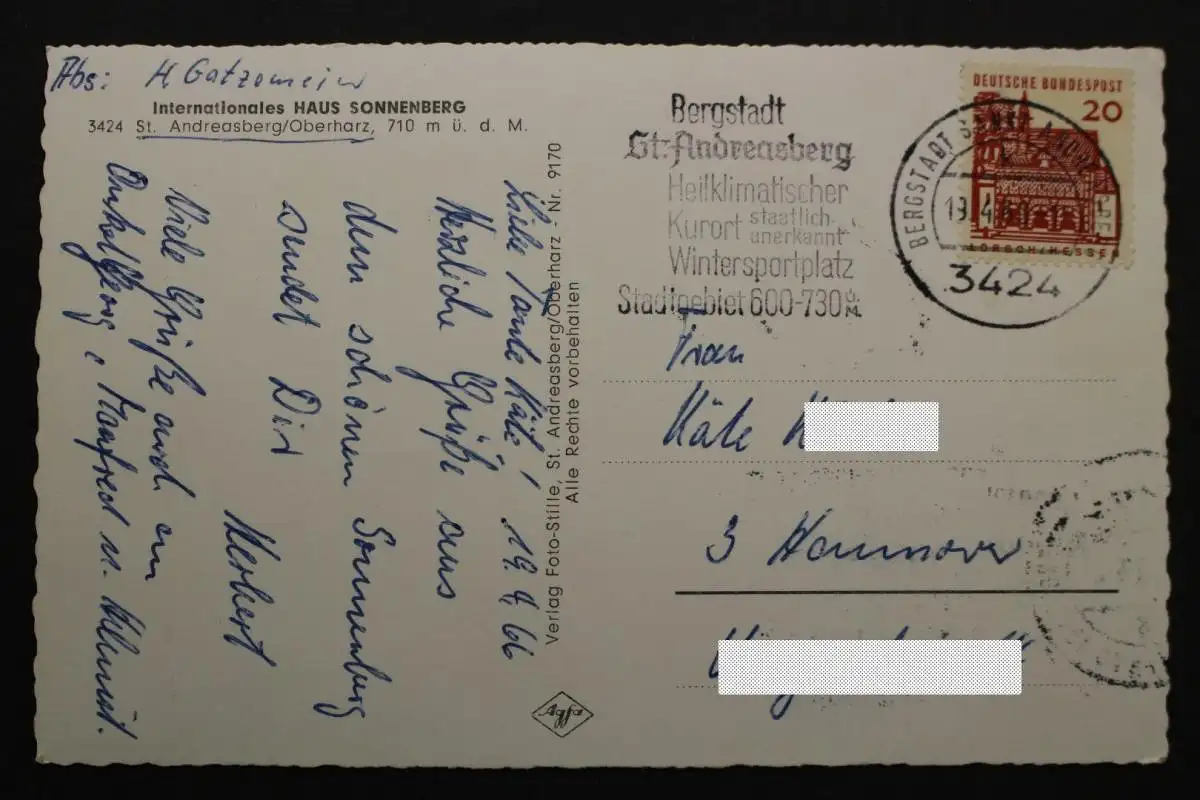 Abs: H Gatzemeier
Internationales HAUS SONNENBERG
3424 St. Andreasberg/Oberharz, 710 m ü. d. M.
Liebe Tante Käte! 19.4.66
Herzliche Grüße aus
dem schönen Sonnenberg
sendet Dir
Herbert
Viele Grüße auch an
Onkel Georg, Manfred u. Helmut.
Verlag Foto-Stille, St. Andreasberg/Oberharz - Nr. 9170
Alle Rechte vorbehalten
Agfa
Bergstadt
St. Andreasberg
Heilklimatischer
Kurort staatlich
anerkannt
Wintersportplatz
Stadtgebiet 600-730
BERGSTADT SANKT
19.4.
3424
DEUTSCHE BUNDESPOST
20
LORSCH/HESSEN
Frau
Käte
3 Hannover